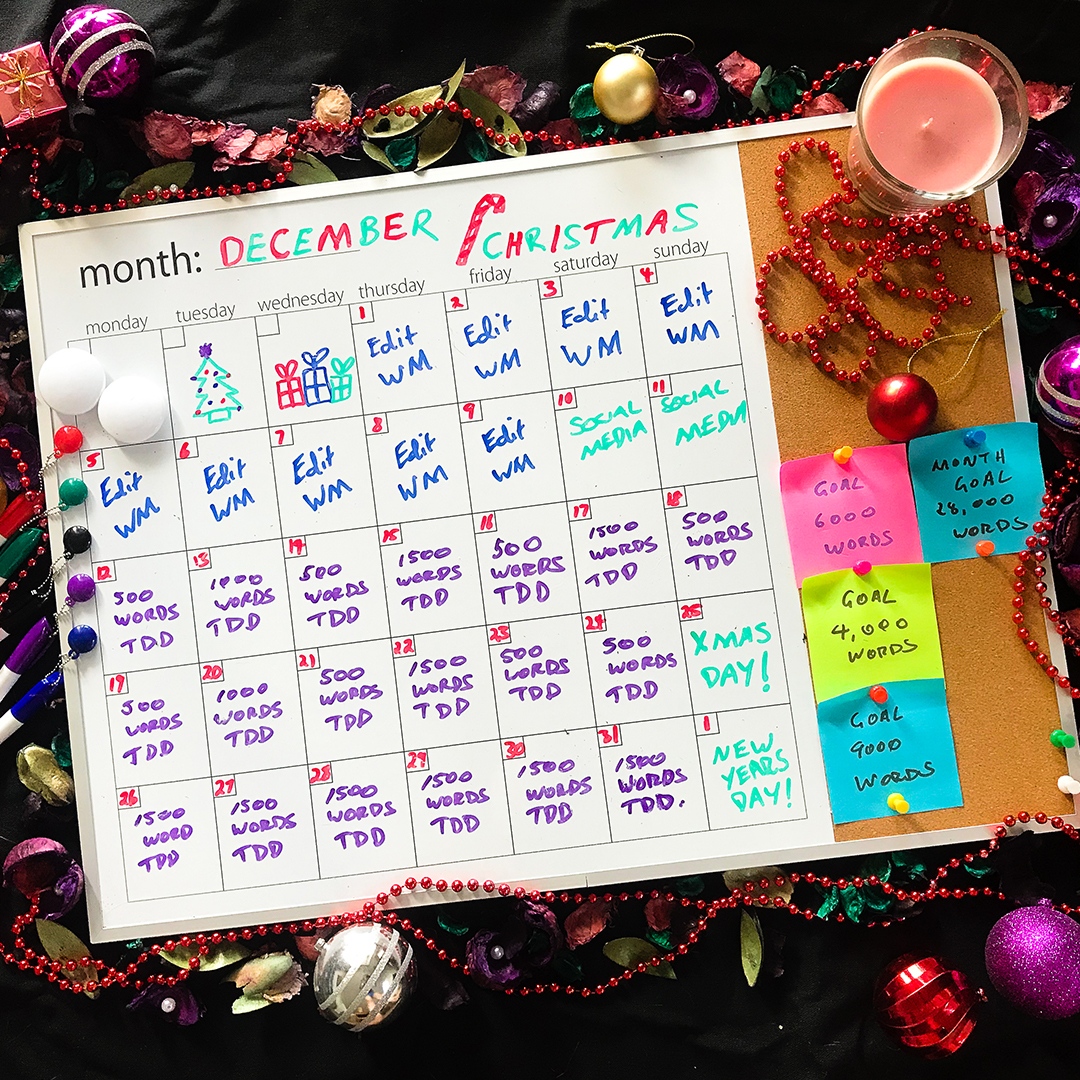 month: DECEMBER CHRISTMAS
monday tuesday wednesday thursday friday saturday sunday
1
Edit
WM
2
Edit
WM
3
Edit
WM
4
Edit
WM
5
Edit
WM
6
Edit
WM
7
Edit
WM
8
Edit
WM
9
Edit
WM
10
SOCIAL
MEDIA
11
SOCIAL
MEDIA
12
500
WORDS
TDD
13
1000
WORDS
TDD
14
500
WORDS
TDD
15
1500
WORDS
TDD
16
500
WORDS
TDD
17
1500
WORDS
TDD
18
500
WORDS
TDD
19
500
WORDS
TDD
20
1000
WORDS
TDD
21
500
WORDS
TDD
22
1500
WORDS
TDD
23
500
WORDS
TDD
24
500
WORDS
TDD
25
XMAS
DAY!
26
1500
WORD
TDD
27
1500
WORDS
TDD
28
1500
WORDS
TDD
29
1500
WORDS
TDD
30
1500
WORDS
TDD
31
1500
WORDS
TDD.
1
NEW
YEARS
DAY!
GOAL
6000
WORDS
MONTH
GOAL
28,000
WORDS
GOAL
4,000
WORDS
GOAL
9000
WORDS